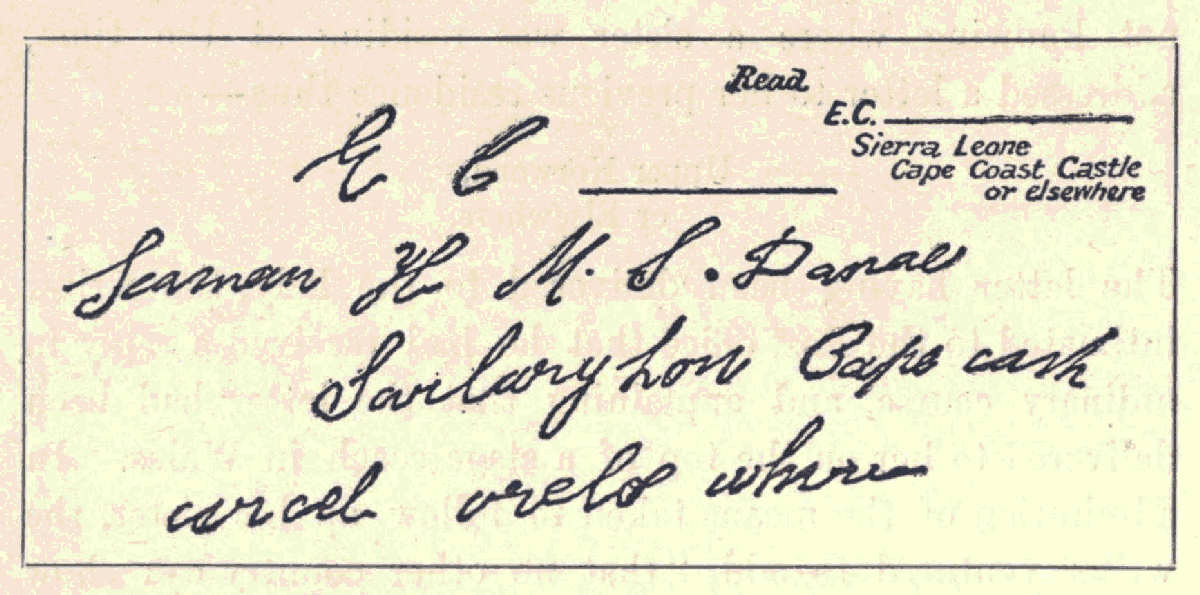 Read
E.C.
Sierra Leone
Cape Coast Castle
or elsewhere
E C
Seaman H. M. S. Danae
Sarlury hon Cape cash
carcel orels where